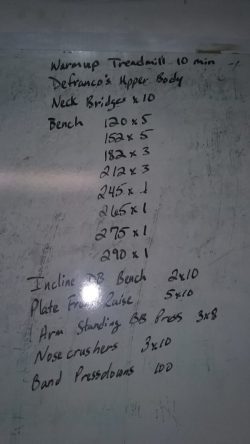 Warmup Treadmill 10 min
Defranco's Upper Body
Neck Bridges x 10
Bench 120 x 5
152 x 5
182 x 3
212 x 3
245 x 1
265 x 1
275 x 1
290 x 1
Incline DB Bench 2x10
Plate Front Raise 5x10
Arm Standing BB Press 3x8
Nosecrushers 3x10
Band Pressdowns 100